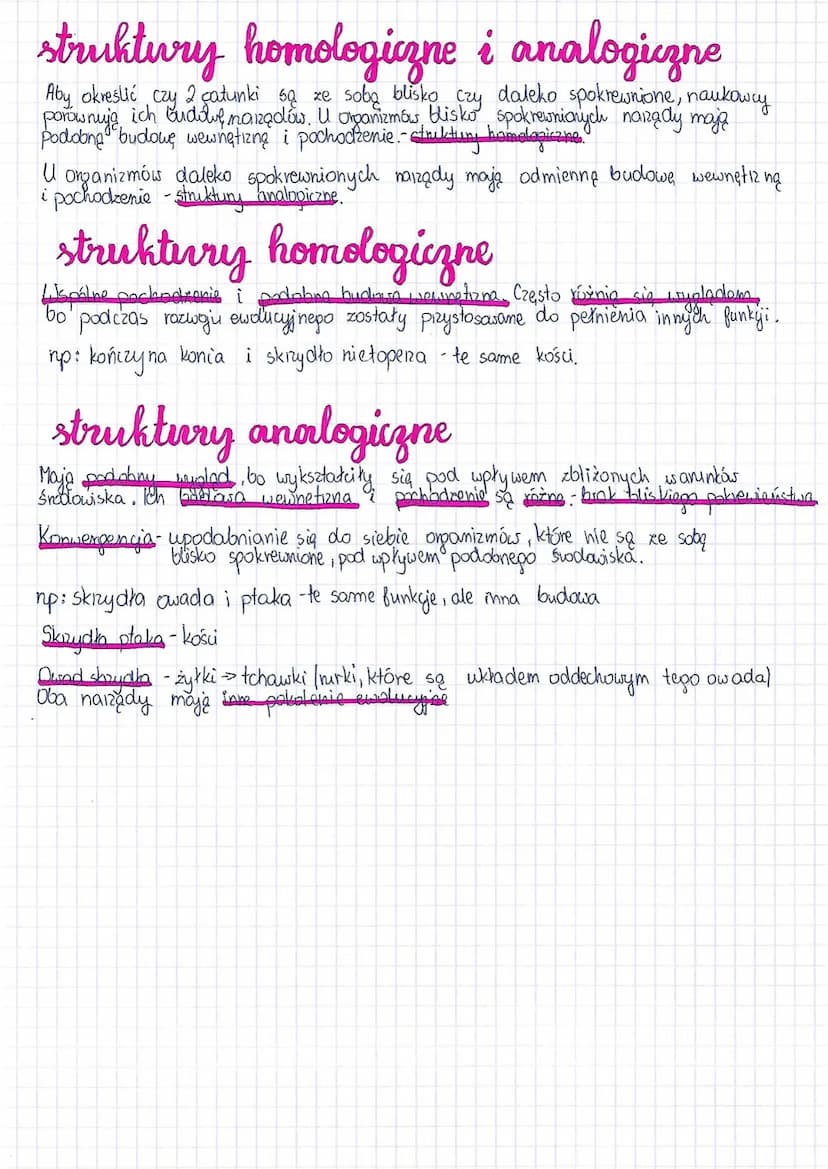 struktury homologiczne i analogiczne
Aby określić czy 2 gatunki są ze sobą blisko czy daleko spokrewnione, naukowcy
porównują ich budowę narządów. U organizmów blisko spokrewnionych narządy mają
podobną budowę wewnętrzną i pochodzenie. - struktury homologiczne.
U organizmów daleko spokrewnionych narządy mają odmienną budowę wewnętrzną
i pochodzenie - struktury analogiczne.
struktury homologiczne
Wspólne pochodzenie i podobna budowa wewnętrzna. Często różnią się wyglądem,
bo podczas rozwoju ewolucyjnego zostały przystosowane do pełnienia innych funkcji.
np: kończyna konia i skrzydło nietoperza - te same kości.
struktury analogiczne
Mają podobny wygląd, bo wykształciły się pod wpływem zbliżonych warunków
środowiska. Ich budowa wewnętrzna i pochodzenie są różne - brak bliskiego pokrewieństwa
Konwergencja - upodabnianie się do siebie organizmów, które nie są ze sobą
blisko spokrewnione, pod wpływem podobnego środowiska.
np: skrzydła owada i ptaka - te same funkcje, ale inna budowa
Skrzydła ptaka - kości
Owad skrzydła - żyłki → tchawki (rurki, które są układem oddechowym tego owada)
Oba narządy mają inne pokolenie ewolucyjne